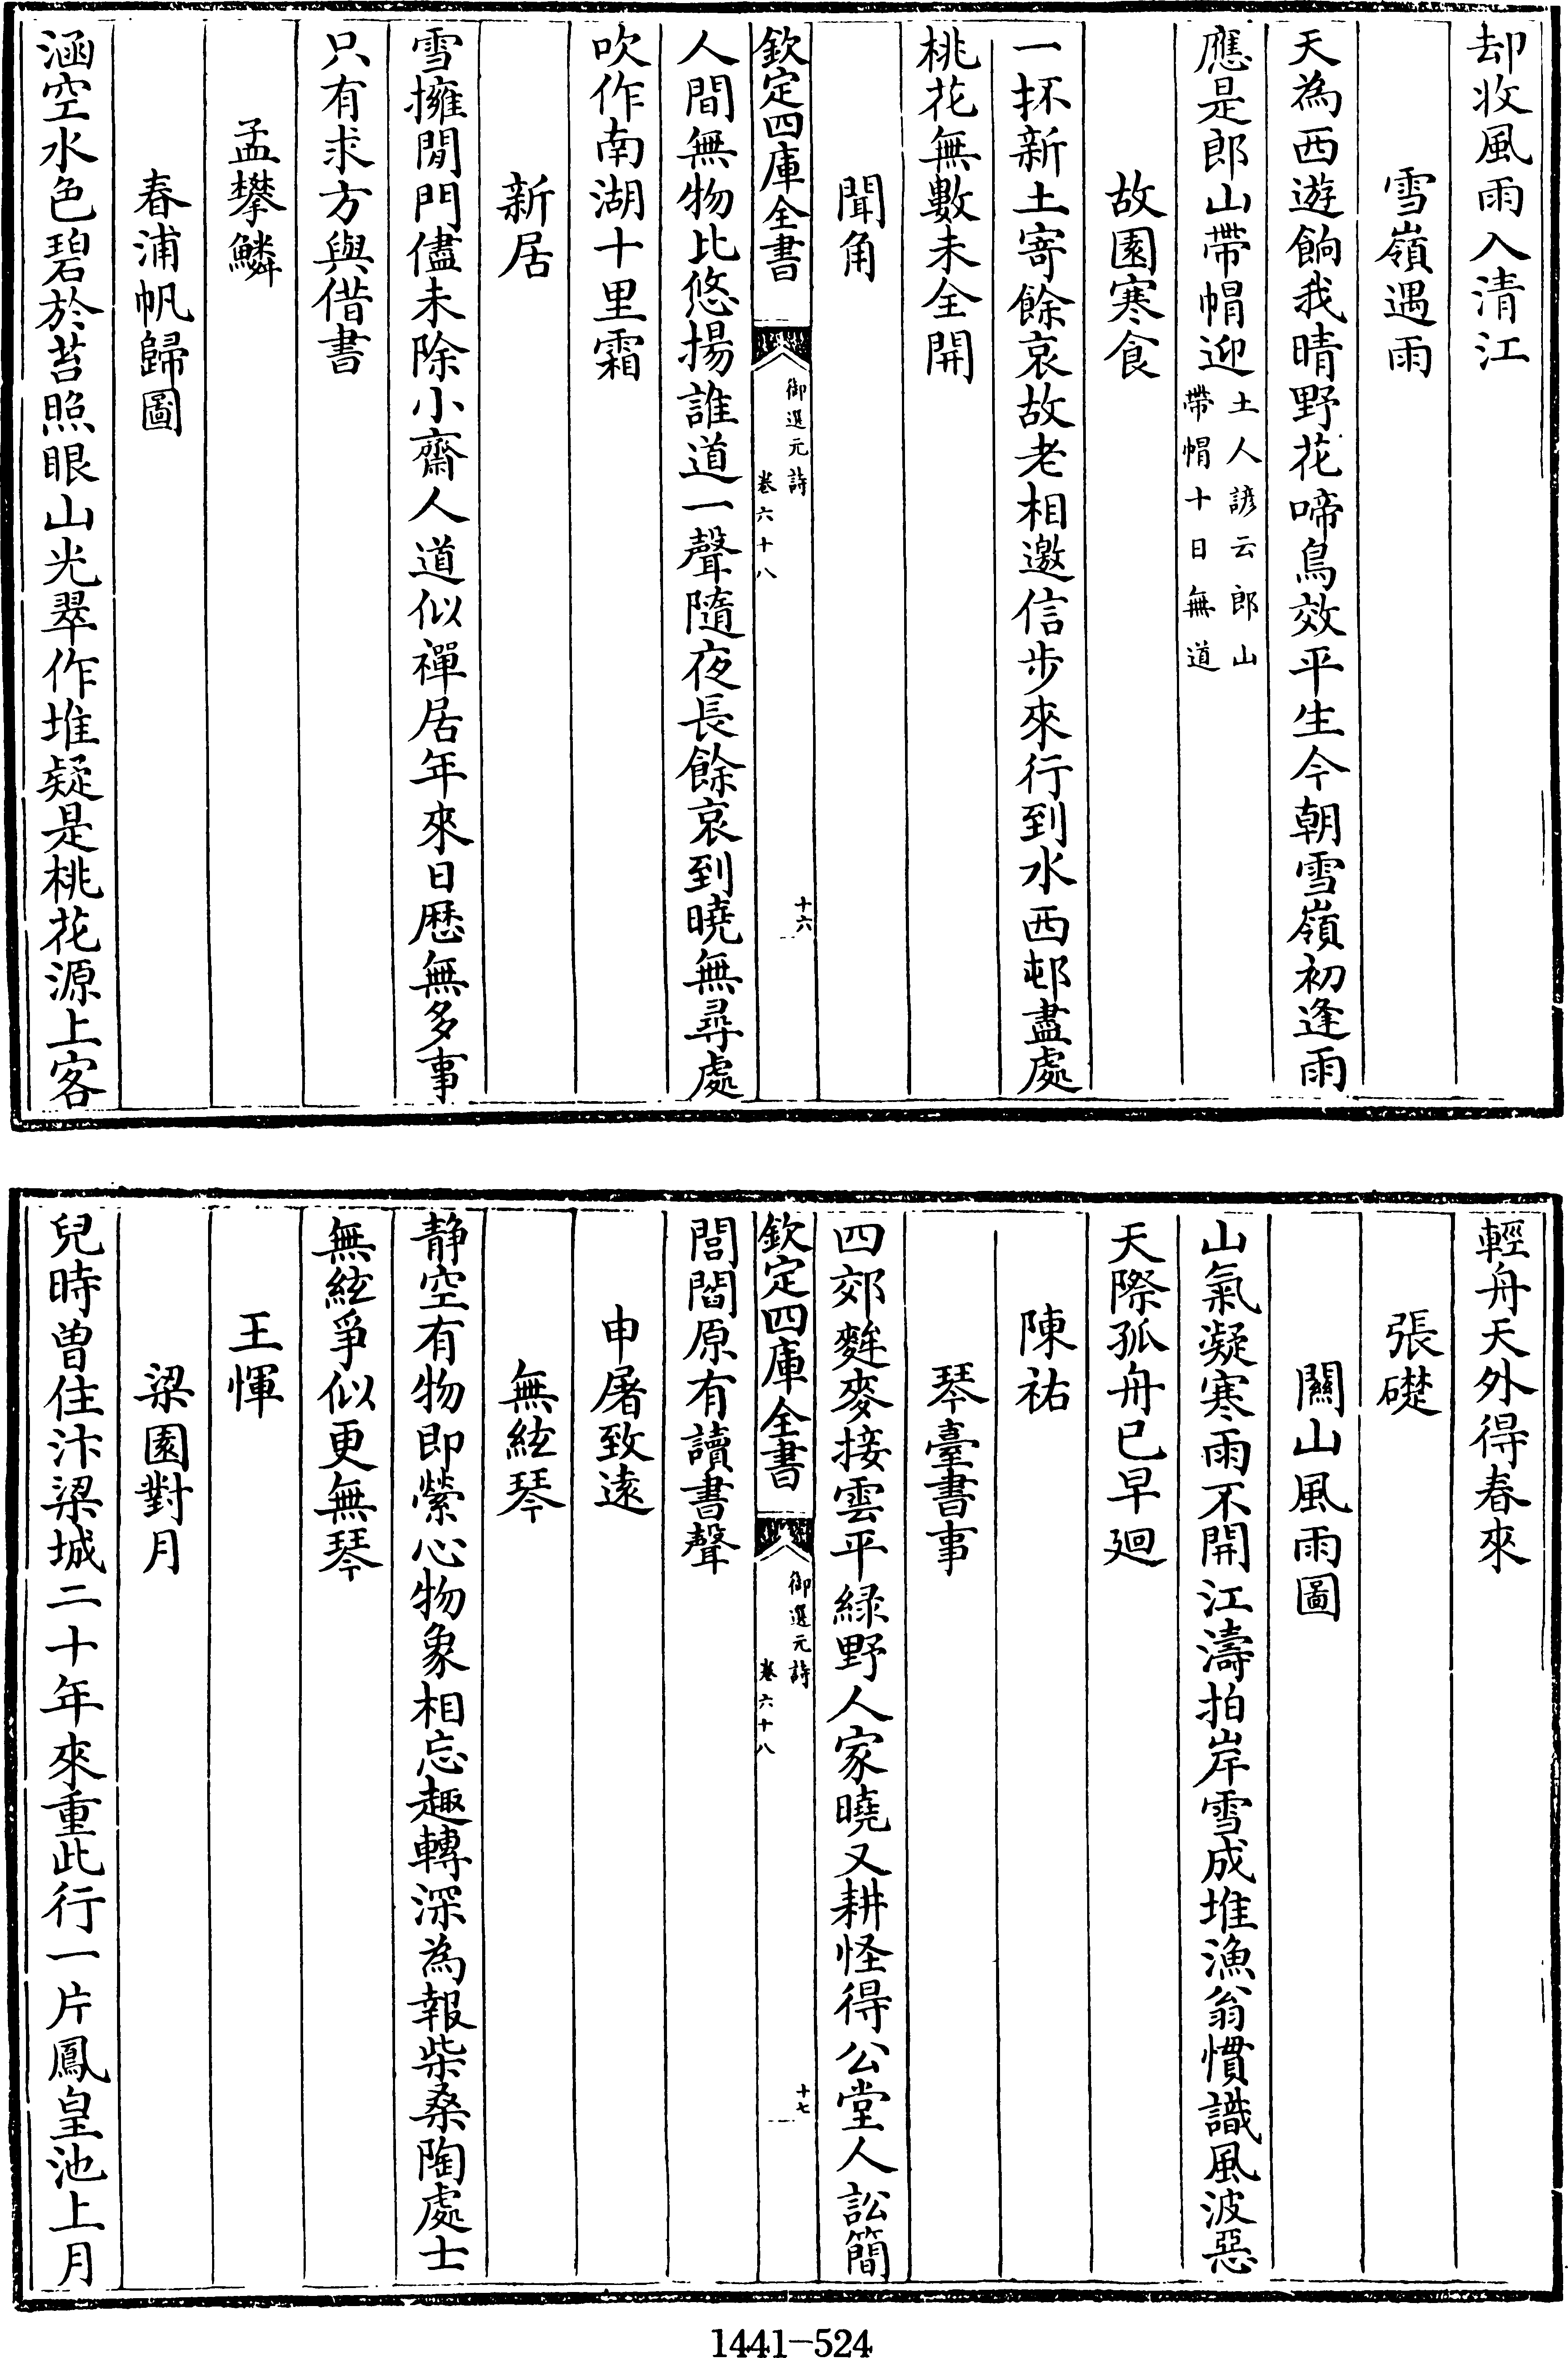 却收風雨入清江
雪嶺遇雨
天為西遊餉我晴野花啼鳥效平生今朝雪嶺初逢雨
應是郎山帶帽迎土人諺云郎山帶帽十日無道
故園寒食
一抔新土寄餘哀故老相邀信步來行到水西邨盡處
桃花無數未全開
聞角
欽定四庫全書
御選元詩
卷六十八
十六
人間無物比悠揚誰道一聲隨夜長餘哀到曉無尋處
吹作南湖十里霜
新居
雪擁閒門儘未除小齋人道似禪居年來日歷無多事
只有求方與借書
孟攀鱗
春浦帆歸圖
涵空水色碧於苔照眼山光翠作堆疑是桃花源上客
輕舟天外得春來
張礎
關山風雨圖
山氣凝寒雨不開江濤拍岸雪成堆漁翁慣識風波惡
天際孤舟已早迴
陳祐
琴臺書事
四郊麰麥接雲平綠野人家曉又耕怪得公堂人訟簡
欽定四庫全書
御選元詩
卷六十八
十七
閭閻原有讀書聲
申屠致遠
無絃琴
静空有物即縈心物象相忘趣轉深為報柴桑陶處士
無絃爭似更無琴
王惲
梁園對月
兒時曾住汴梁城二十年來重此行一片鳳皇池上月
1441-524